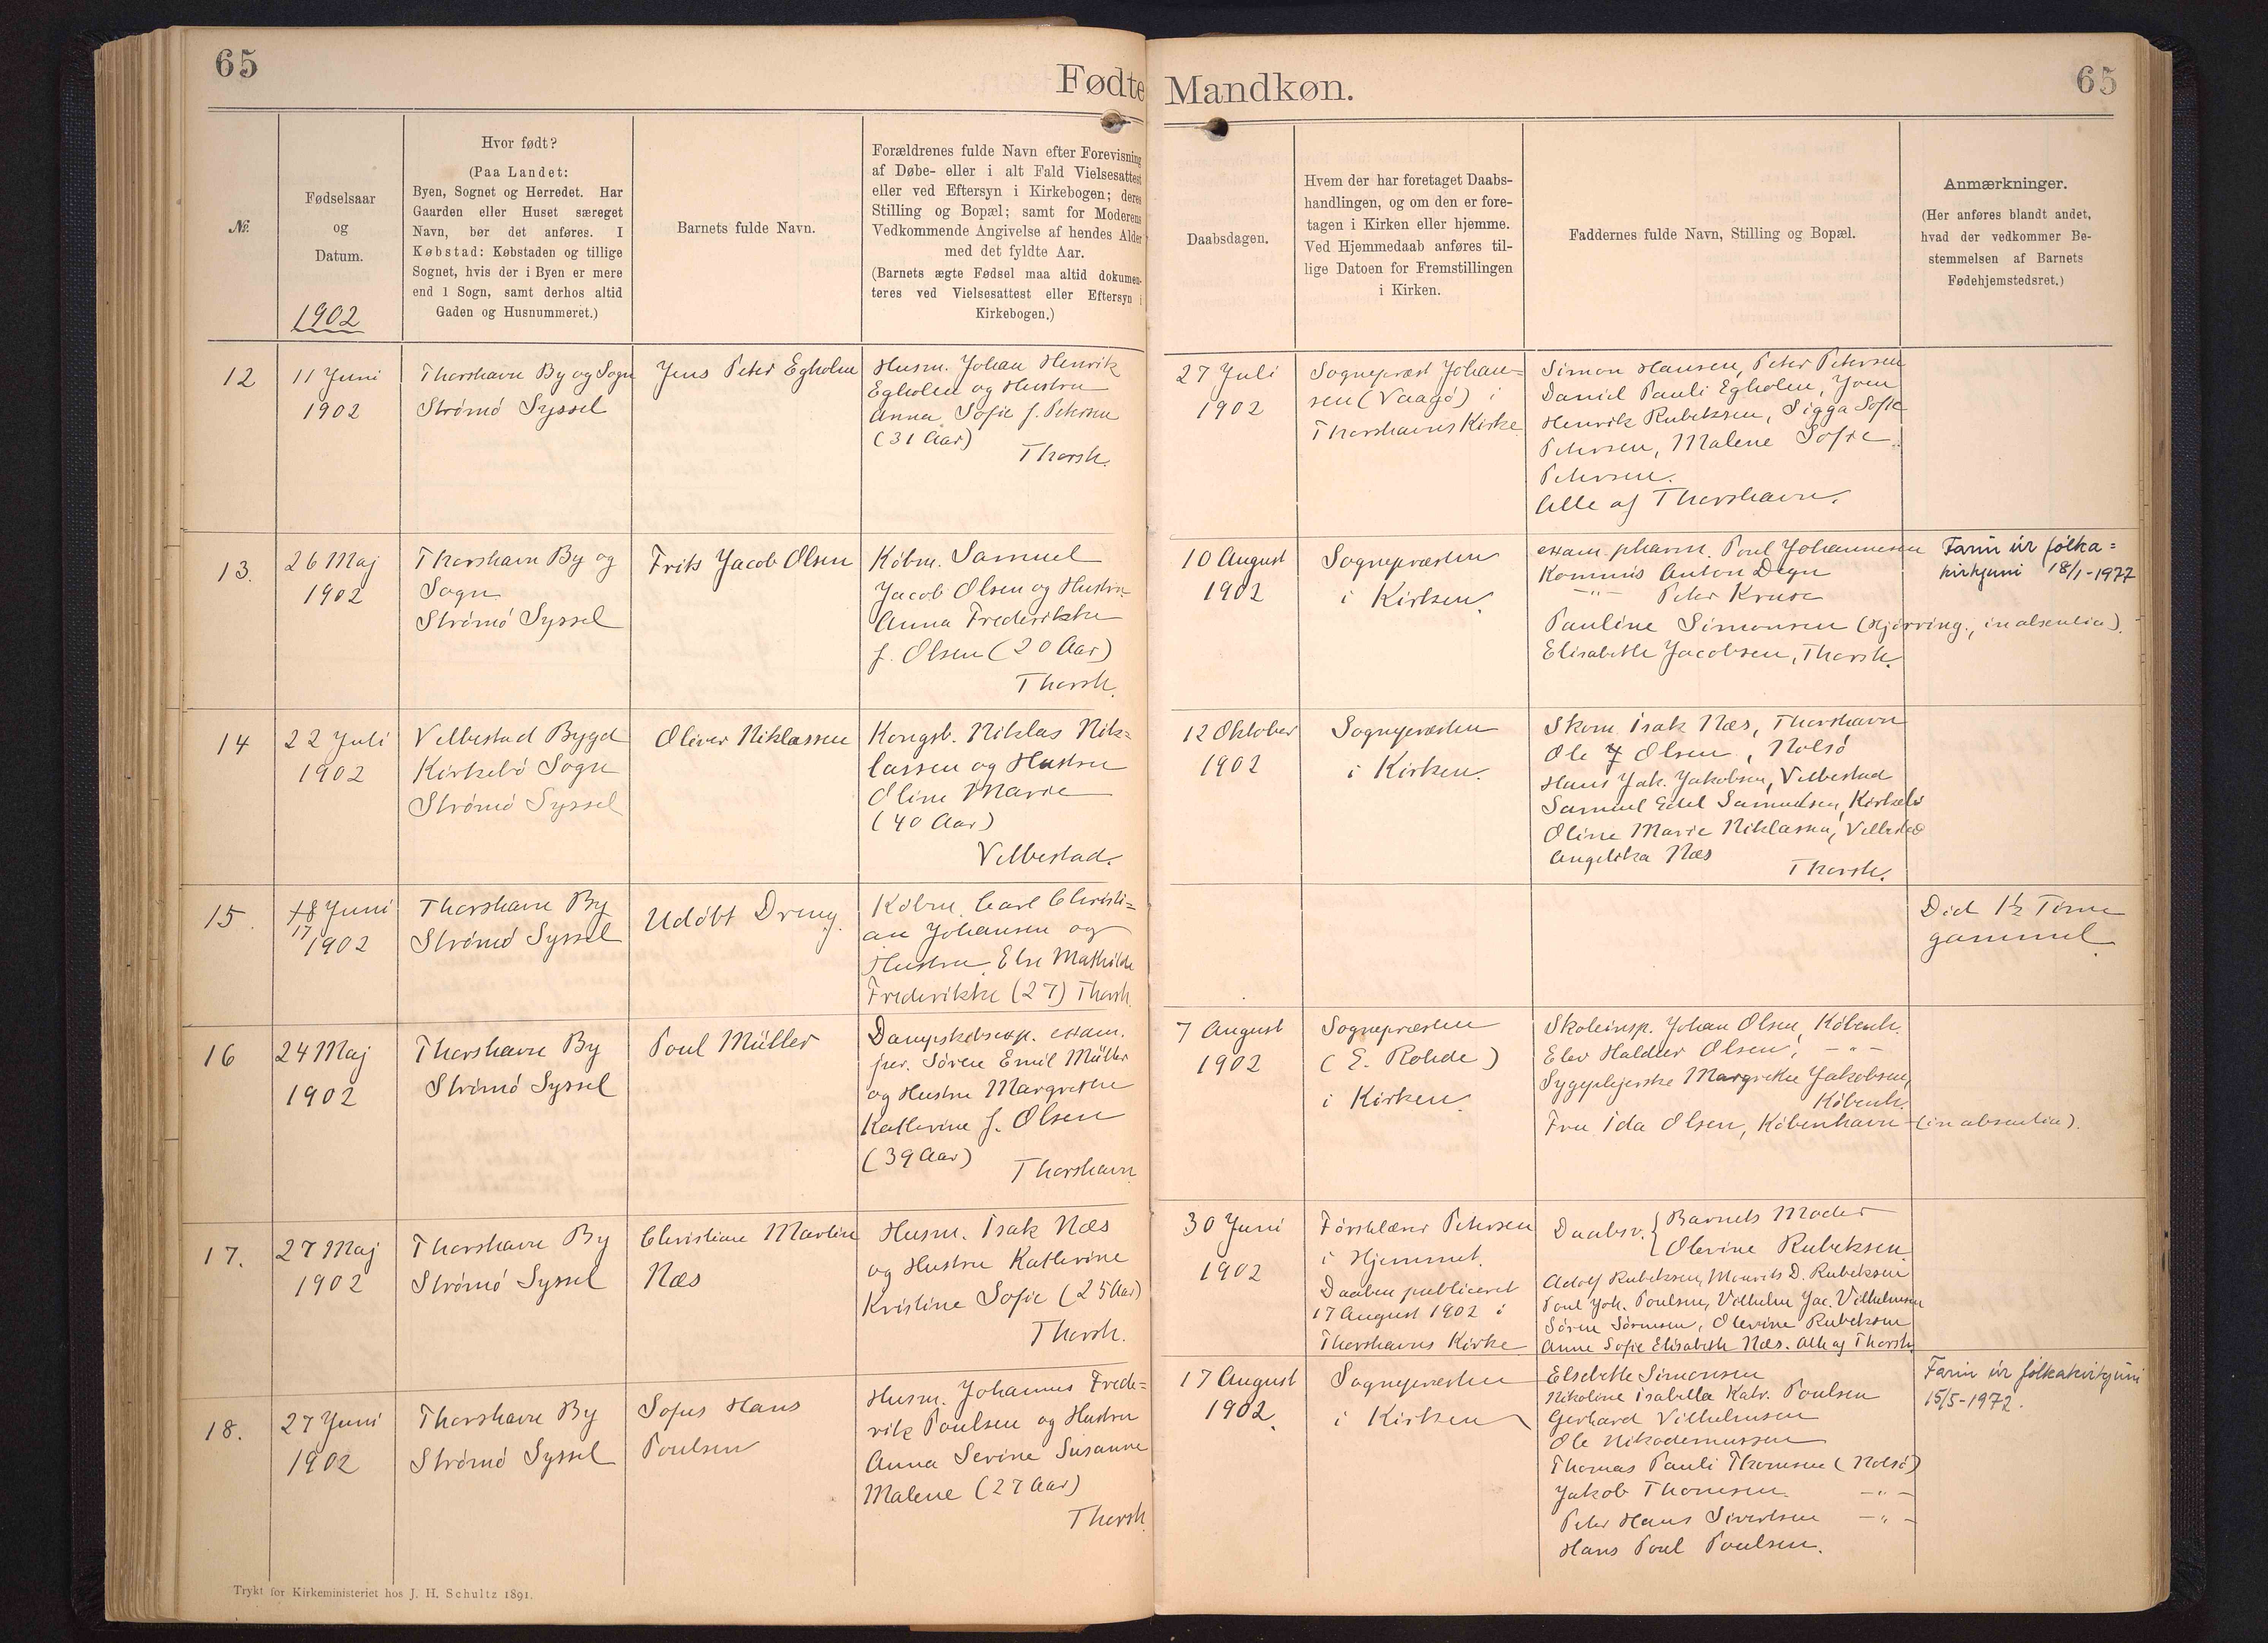 65
Fødte
Mandkøn.
65
№.
Fødselsaar
og
Datum.
1902
Hvor født?
(Paa Landet:
Byen, Sognet og Herredet. Har
Gaarden eller Huset særeget
Navn, bør det anføres. I
Købstad: Købstaden og tillige
Sognet, hvis der i Byen er mere
end 1 Sogn, samt derhos altid
Gaden og Husnummeret.)
Barnets fulde Navn.
Forældrenes fulde Navn efter Forevisning
af Døbe- eller i alt Fald Vielsesattest
eller ved Eftersyn i Kirkebogen; deres
Stilling og Bopæl; samt for Moderens
Vedkommende Angivelse af hendes Alder
med det fyldte Aar.
(Barnets ægte Fødsel maa altid dokumen-
teres ved Vielsesattest eller Eftersyn i
Kirkebogen.)
Daabsdagen.
Hvem der har foretaget Daabs-
handlingen, og om den er fore-
tagen i Kirken eller hjemme.
Ved Hjemmedaab anføres til-
lige Datoen for Fremstillingen
i Kirken.
Faddernes fulde Navn, Stilling og Bopæl.
Anmærkninger.
(Her anføres blandt andet,
hvad der vedkommer Be-
stemmelsen af Barnets
Fødehjemstedsret.)
12
11 Juni
1902
Thorshavn By og Sogn
Strømø Syssel
Jens Peter Egholm
Husm. Johan Henrik
Egholm og Hustru
Anna Sofie f. Petersen
(31 Aar)
Thorsh.
27 Juli
1902
Sognepræst Johan=
sen (Vaagø) i
Thorshavns Kirke
Simon Hansen, Peter Petersen
Daniel Pauli Egholm, Joen
Henrik Rubeksen, Sigga Sofie
Petersen, Malene Sofie
Petersen.
Alle af Thorshavn.
13.
26 Maj
1902
Thorshavn By og
Sogn
Strømø Syssel
Frits Jacob Olsen
Købm. Samuel
Jacob Olsen og Hustru
Anna Frederikke
f. Olsen (20 Aar)
Thorsh.
10 August
1902
Sognepræsten
i Kirken.
exam. pharm. Poul Johannesen
Kommis Anton Degn
-"- Peter Kruse
Pauline Simonsen (Hjørring, in absentia).
Elisabeth Jacobsen, Thorsh.
Farin úr fólka=
kirkjuni 18/1-1977
14
22 Juli
1902
Velbestad Bygd
Kirkebø Sogn
Strømø Syssel
Oliver Niklassen
Kongsb. Niklas Nik=
lassen og Hustru
Oline Marie
(40 Aar)
Velbestad.
12 Oktober
1902
Sognepræsten
i Kirken.
Skom. Isak Næs, Thorshavn
Ole J Olsen, Nolsø
Hans Jak. Jakobsen, Velbestad
Samuel Edel Samuelsen, Kirkebø
Oline Marie Niklassen, Velbestad
Angelika Næs
Thorsh.
15.
18 Juni
17
1902
Thorshavn By
Strømø Syssel
Udøbt Dreng.
Købm. Carl Christi=
an Johansen og
Hustru Else Mathilde
Frederikke (27) Thorsh.
Død 1½ Time
gammel.
16
24 Maj
1902
Thorshavn By
Strømø Syssel
Poul Müller
Dampskibsexp. exam.
jur. Søren Emil Müller
og Hustru Margrethe
Katherine f. Olsen
(39 Aar)
Thorshavn
7 August
1902
Sognepræsten
(E. Rohde)
i Kirken.
Skoleinsp. Johan Olsen, Københ.
Elev Haldur Olsen, -"-
Sygeplejerske Margrethe Jakobsen,
Københ.
Fru Ida Olsen, København (in absentia).
17.
27 Maj
1902
Thorshavn By
Strømø Syssel
Christian Martin
Næs
Husm. Isak Næs
og Hustru Katherine
Kristine Sofie (25 Aar)
Thorsh.
30 Juni
1902
Førstelærer Petersen
i Hjemmet.
Daaben publiceret
17 August 1902 i
Thorshavns Kirke
Daabsv. { Barnets Moder
Olevine Rubeksen
Adolf Rubeksen, Mourits D. Rubeksen
Poul Joh. Poulsen, Vilhelm Jac. Vilhelmsen
Søren Sørensen, Olevine Rubeksen
Anne Sofie Elisabeth Næs. Alle af Thorsh.
18.
27 Juni
1902
Thorshavn By
Strømø Syssel
Sofus Hans
Poulsen
Husm. Johannes Frede=
rik Poulsen og Hustru
Anna Sevine Susanne
Malene (27 Aar)
Thorsh
17 August
1902.
Sognepræsten
i Kirken
Elsebeth Simonsen
Nikoline Isabella Katr. Poulsen
Gerhard Vilhelmsen
Ole Nikodemussen
Thomas Pauli Thomsen (Nolsø)
Jakob Thomsen. -"-
Peter Hans Sivertsen -"-
Hans Poul Poulsen.
Farin úr fólkakirkjuni
15/5-1972.
Trykt for Kirkeministeriet hos J. H. Schultz 1891.